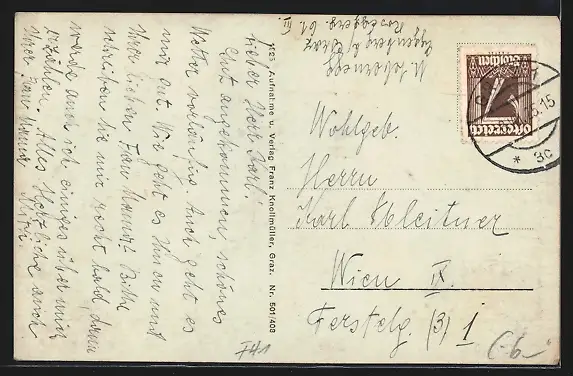 Lieber Herr Karl!
Gut angekommen, schönes
Wetter vorläufig. Auch geht es
mir gut. Wie geht es Ihnen und
Ihrer lieben Frau Mama? Bitte
schreiben Sie mir recht bald, dann
werde auch ich einiges über mich
erzählen. Alles Herzliche auch
Ihrer Frau Mama
Mizzi.
1925 Aufnahme u. Verlag Franz Knollmüller, Graz. Nr. 501/408
Eggenberg b/ Graz
Wohlgeb.
Herrn
Karl Kleitner
Wien IX.
Ferstelg. (3) 1
Österreich
Groschen
15
* 3c